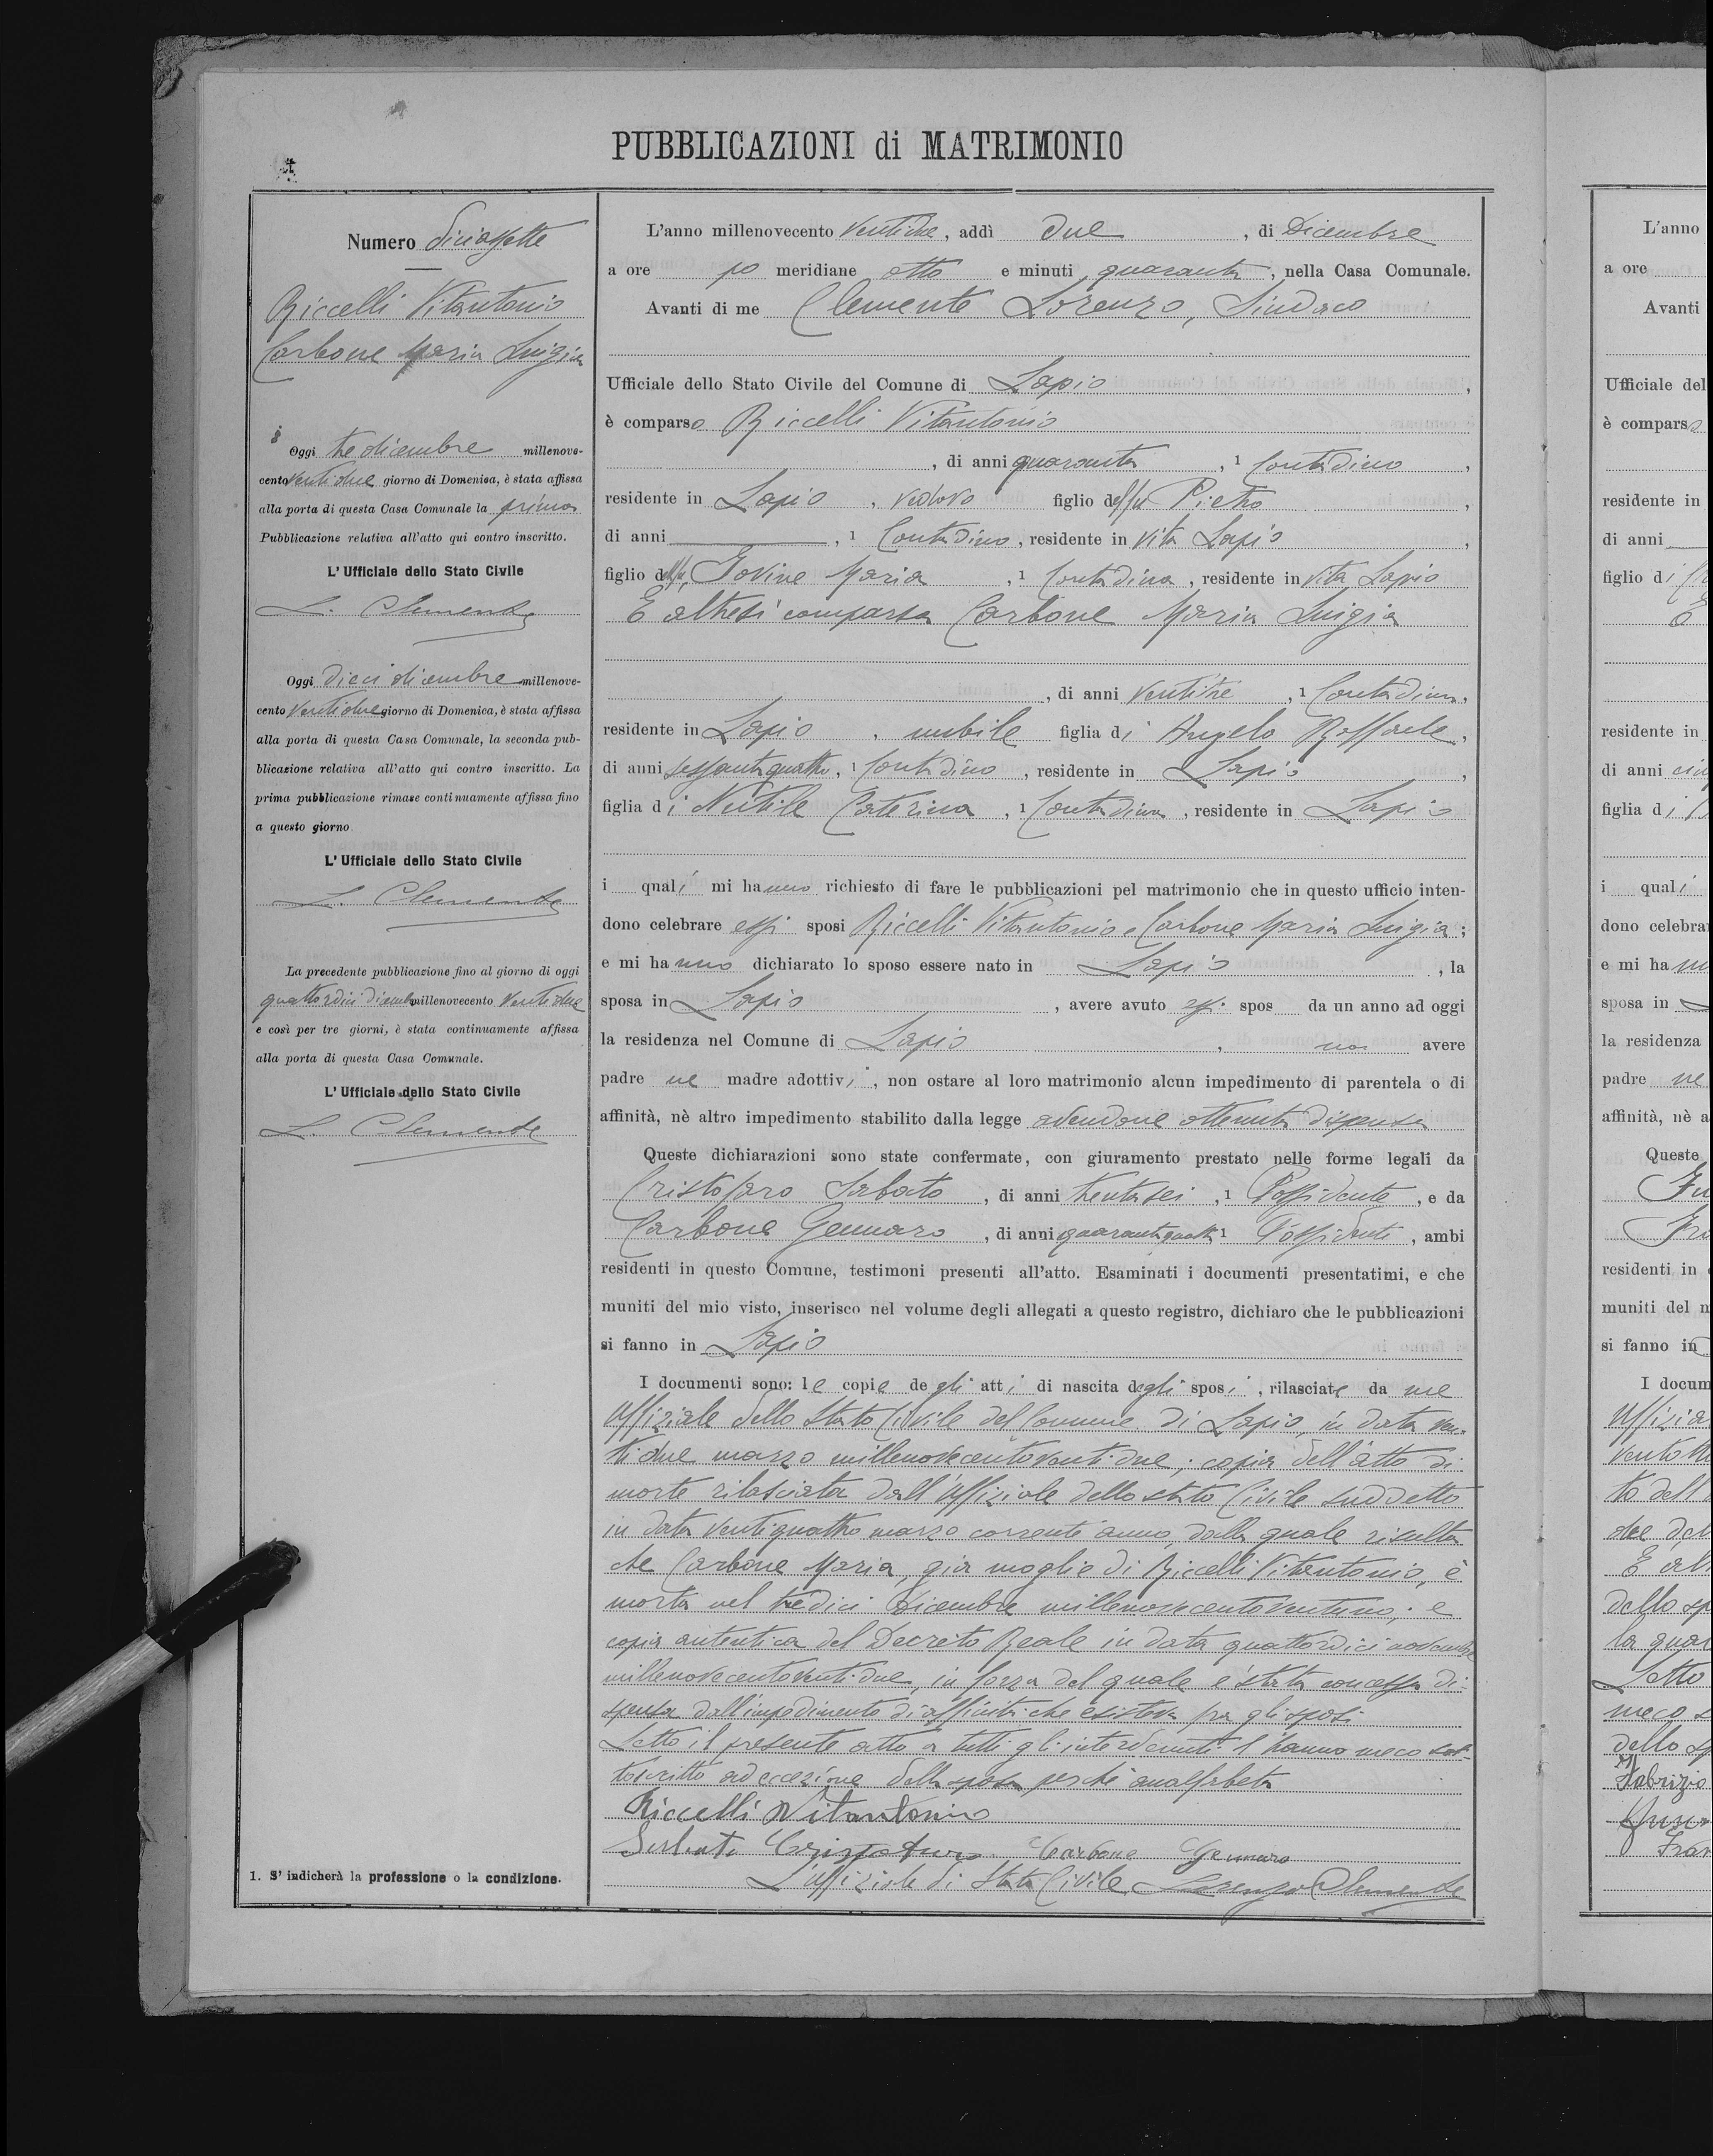 PUBBLICAZIONI di MATRIMONIO
Numero diciassette
Riccelli Vitantonio
Carbone Maria Luigia
Oggi tre dicembre millenove-
cento ventidue giorno di Domenica, è stata affissa
alla porta di questa Casa Comunale la prima
Pubblicazione relativa all'atto qui contro inscritto.
L'Ufficiale dello Stato Civile
L. Clemente
Oggi dieci dicembre millenove-
cento ventidue giorno di Domenica, è stata affissa
alla porta di questa Casa Comunale, la seconda pub-
blicazione relativa all'atto qui contro inscritto. La
prima pubblicazione rimase continuamente affissa fino
a questo giorno.
L'Ufficiale dello Stato Civile
L. Clemente
La precedente pubblicazione fino al giorno di oggi
quattordici dicemb millenovecento ventidue
e così per tre giorni, è stata continuamente affissa
alla porta di questa Casa Comunale.
L'Ufficiale dello Stato Civile
L. Clemente
1. S'indicherà la professione o la condizione.
L'anno millenovecento ventidue, addì due, di Dicembre
a ore po meridiane otto e minuti quaranta, nella Casa Comunale.
Avanti di me Clemente Lorenzo, Sindaco
Ufficiale dello Stato Civile del Comune di Lapio,
è comparso Riccelli Vitantonio
, di anni quaranta, 1 Contadino,
residente in Lapio, vedovo figlio del fu Pietro,
di anni, 1 Contadino, residente in vita Lapio,
figlio della fu Iovine Maria, 1 Contadina, residente in vita Lapio
E altresì comparsa Carbone Maria Luigia
, di anni ventitre, 1 Contadina,
residente in Lapio, nubile figlia di Angelo Raffaele,
di anni sessantaquattro, 1 Contadino, residente in Lapio,
figlia di Nutile Caterina, 1 Contadina, residente in Lapio
i quali mi hanno richiesto di fare le pubblicazioni pel matrimonio che in questo ufficio inten-
dono celebrare essi sposi Riccelli Vitantonio e Carbone Maria Luigia;
e mi hanno dichiarato lo sposo essere nato in Lapio, la
sposa in Lapio, avere avuto essi spos da un anno ad oggi
la residenza nel Comune di Lapio, non avere
padre ne madre adottivi, non ostare al loro matrimonio alcun impedimento di parentela o di
affinità, nè altro impedimento stabilito dalla legge avendone ottenuta dispensa
Queste dichiarazioni sono state confermate, con giuramento prestato nelle forme legali da
Cristofaro Sabato, di anni trentasei, 1 Possidente, e da
Carbone Gennaro, di anni quarantaquatt 1 Possidente, ambi
residenti in questo Comune, testimoni presenti all'atto. Esaminati i documenti presentatimi, e che
muniti del mio visto, inserisco nel volume degli allegati a questo registro, dichiaro che le pubblicazioni
si fanno in Lapio
I documenti sono: le copie degli atti di nascita degli sposi, rilasciate da me
Uffiziale dello Stato Civile del Comune di Lapio, in data ven-
tidue marzo millenovecentoventidue; copia dell'atto di
morte rilasciata dall'Uffiziale dello stato Civile suddetto
in data ventiquattro marzo corrente anno, dalla quale risulta
che Carbone Maria, già moglie di Riccelli Vitantonio, è
morta nel tredici Dicembre millenovecentoventuno; e
copia autentica del Decreto Reale in data quattordici novembre
millenovecentoventidue, in forza del quale è stata concessa di-
spensa dall'impedimento di affinità che esisteva fra gli sposi
Letto il presente atto a tutti gli intervenuti l'hanno meco sot-
toscritto ad eccezione della sposa perché analfabeta
Riccelli Vitantonio
Sabato Cristofaro Carbone Gennaro
L'Uffiziale di Stato Civile Lorenzo Clemente
L'anno
a ore
Avanti
Ufficiale del
è compars
residente in
di anni
figlio di
E
residente in
di anni
figlia di
i quali
dono celebra
e mi ha
sposa in
la residenza
padre ne
affinità, nè a
Queste
residenti in
muniti del m
si fanno in
I docum
Uffizia
to dell
E alt
dello sp
la qual
Letto
meco s
dello sp
Fabrizio